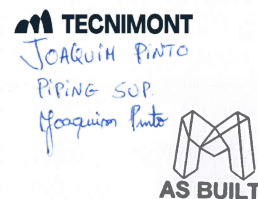 TECNIMONT
JOAQUIM PINTO
PIPING SUP.
Joaquim Pinto
AS BUILT